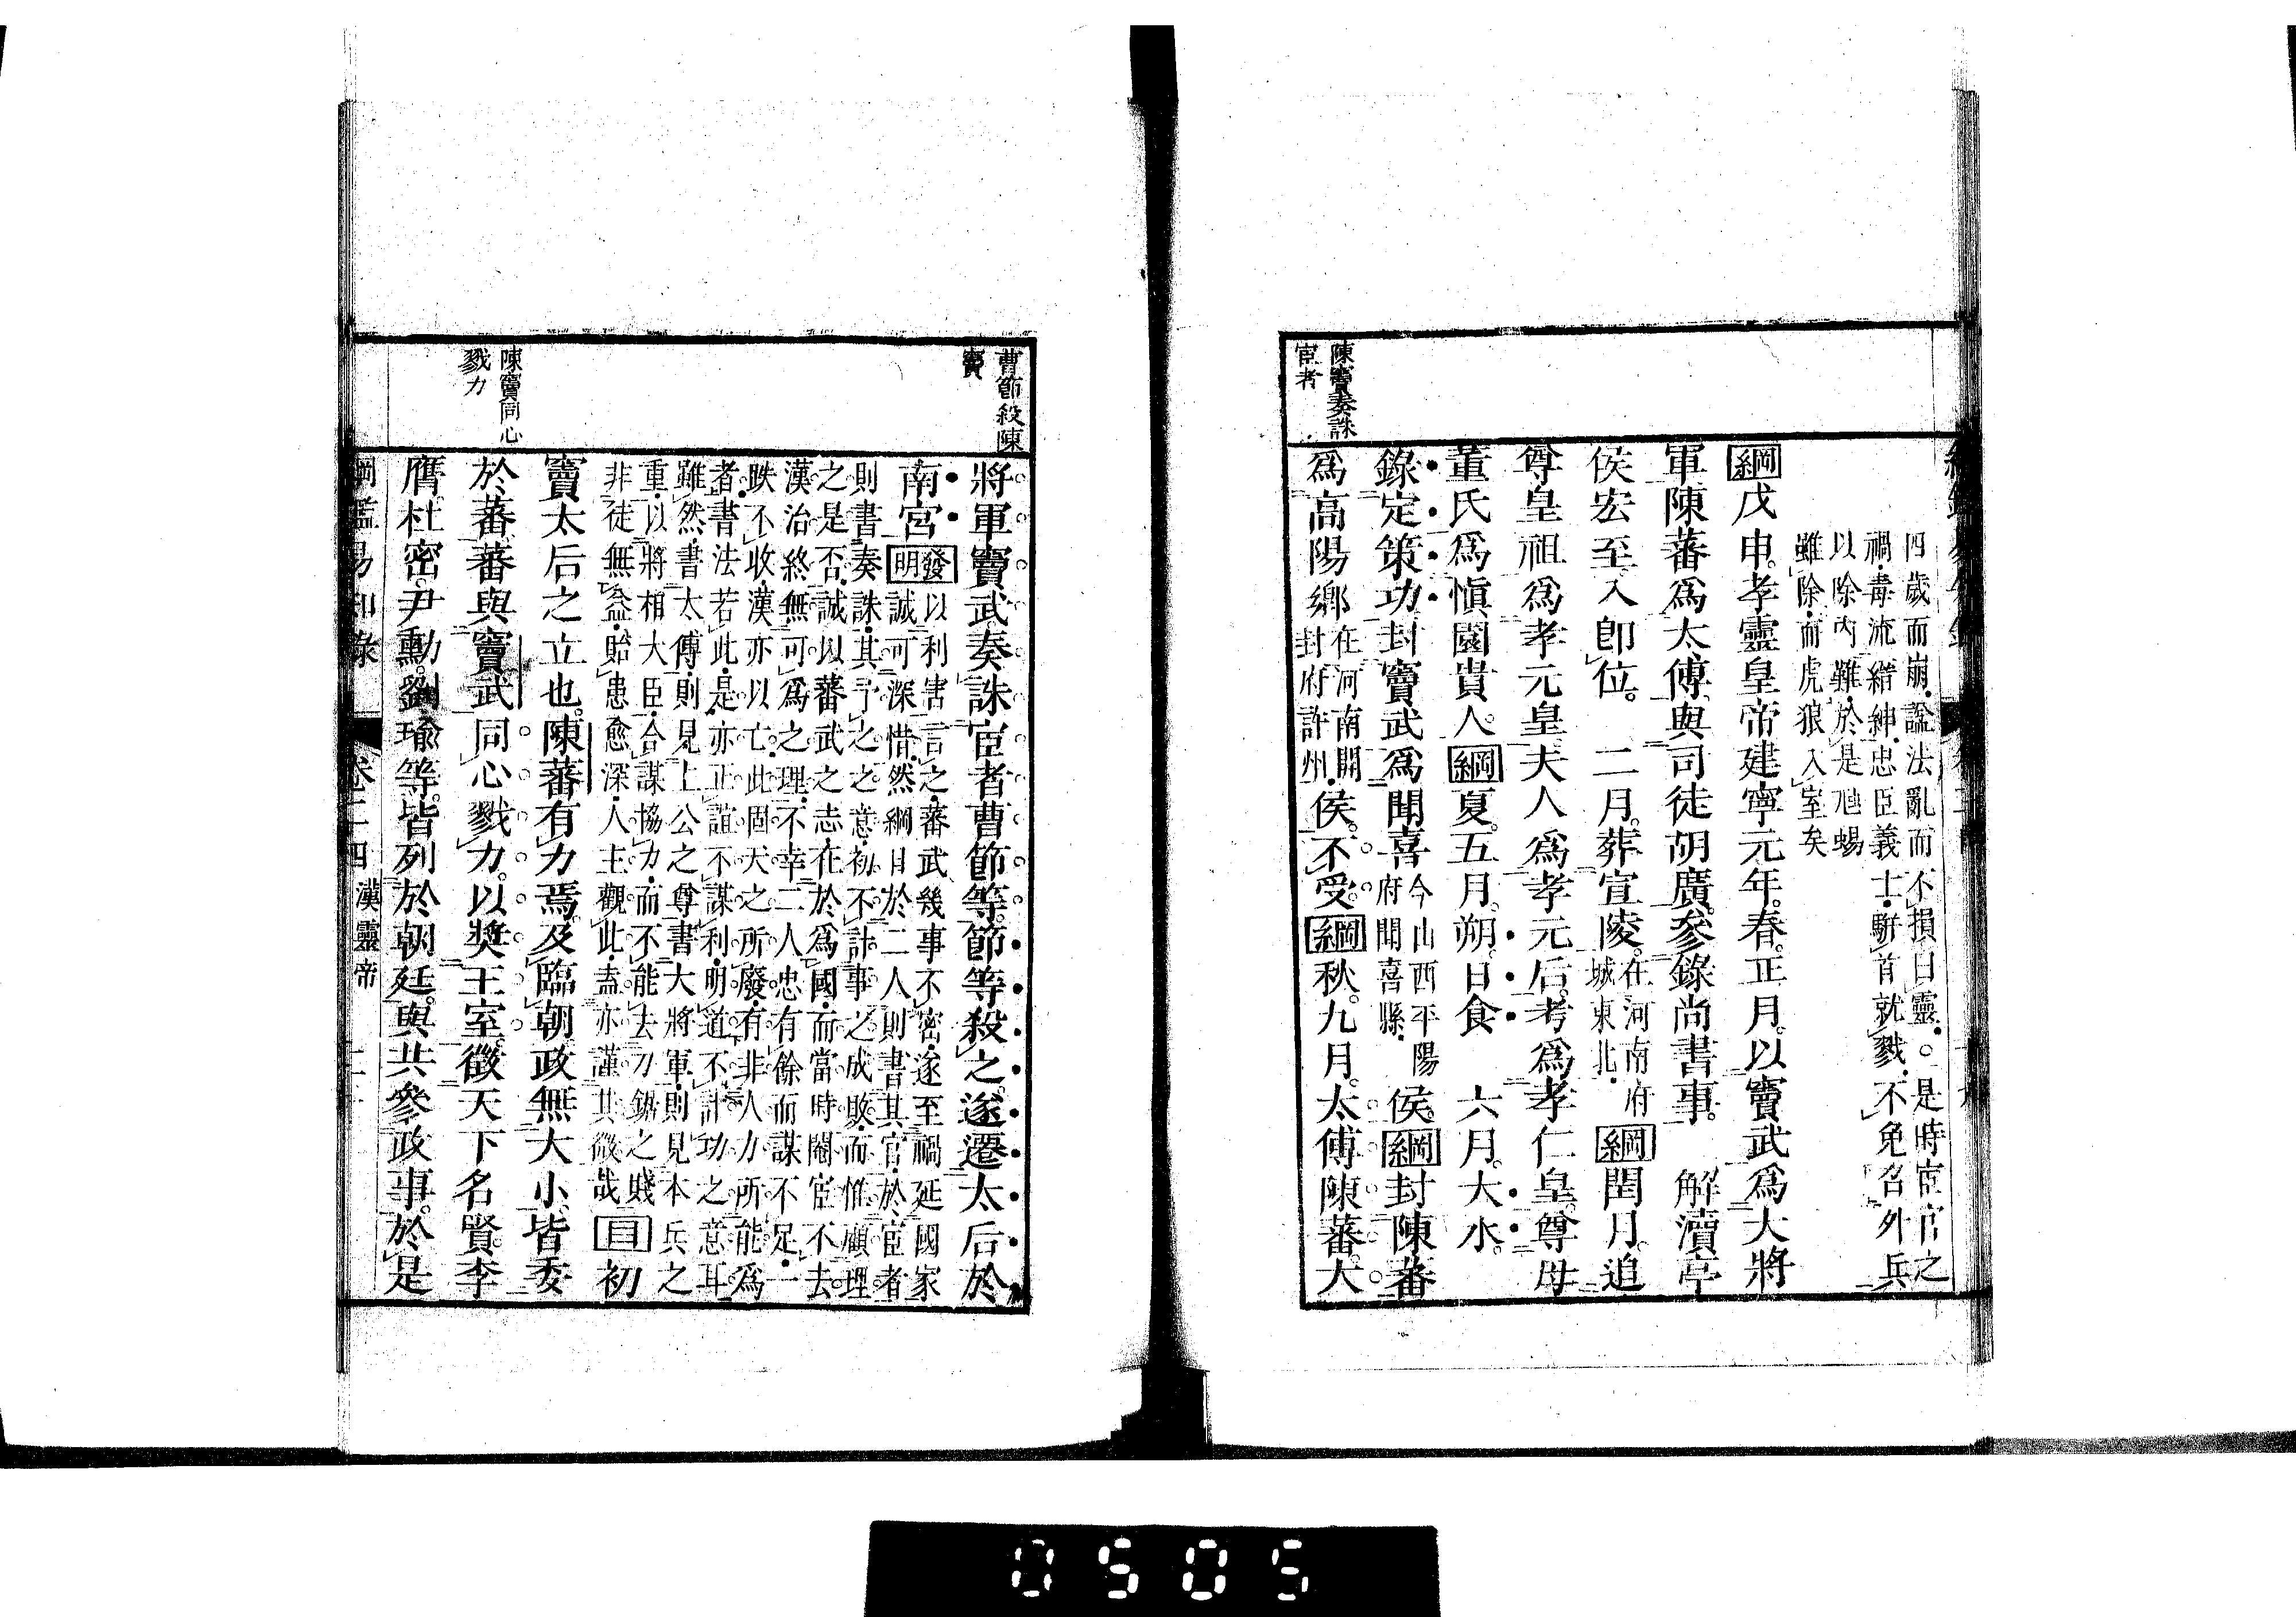 陳竇奏誅
宦者
四歲而崩諡法亂而不損曰靈○是時宦官之
禍毒流縉紳忠臣義士駢首就戮不免名外兵
以除內難於是虺蜴
雖除而虎狼入室矣
綱戊申孝靈皇帝建寧元年春正月以竇武爲大將
軍陳蕃爲太傅與司徒胡廣參錄尚書事 解瀆亭
侯宏至入卽位 二月葬宣陵在河南府城東北綱閏月追
尊皇祖爲孝元皇夫人爲孝元后考爲孝仁皇尊母
董氏爲愼園貴人綱夏五月朔日食 六月大水
錄定策功封竇武爲聞喜今山西平陽府聞喜縣侯綱封陳蕃
爲高陽鄉在河南開封府許州侯不受綱秋九月太傅陳蕃大
曹節殺陳
竇
陳竇同心
戮力
將軍竇武奏誅宦者曹節等節等殺之遂遷太后於
南宮發明以利害言之蕃武幾事不密遂至禍延國家
誠可深惜然綱目於二人則書其官於宦者
則書奏誅其予之之意初不計事之成敗而惟顧理
之是否誠以蕃武之志在於爲國而當時閹宦不去
漢治終無可爲之理不幸二人忠有餘而謀不足一
跌不收漢亦以亡此固天之所廢有非人力所能爲
者書法若此是亦正誼不謀利明道不計功之意耳
雖然書太傅則見上公之尊書大將軍則見本兵之
重以將相大臣合謀協力而不能去刀鋸之賤
非徒無益貽患愈深人主觀此盍亦謹其微哉目初
竇太后之立也陳蕃有力焉及臨朝政無大小皆委
於蕃蕃與竇武同心戮力以奬王室徵天下名賢李
膺杜密尹勳劉瑜等皆列於朝廷與共參政事於是
綱鑑易知錄 卷二四 漢靈帝
0505